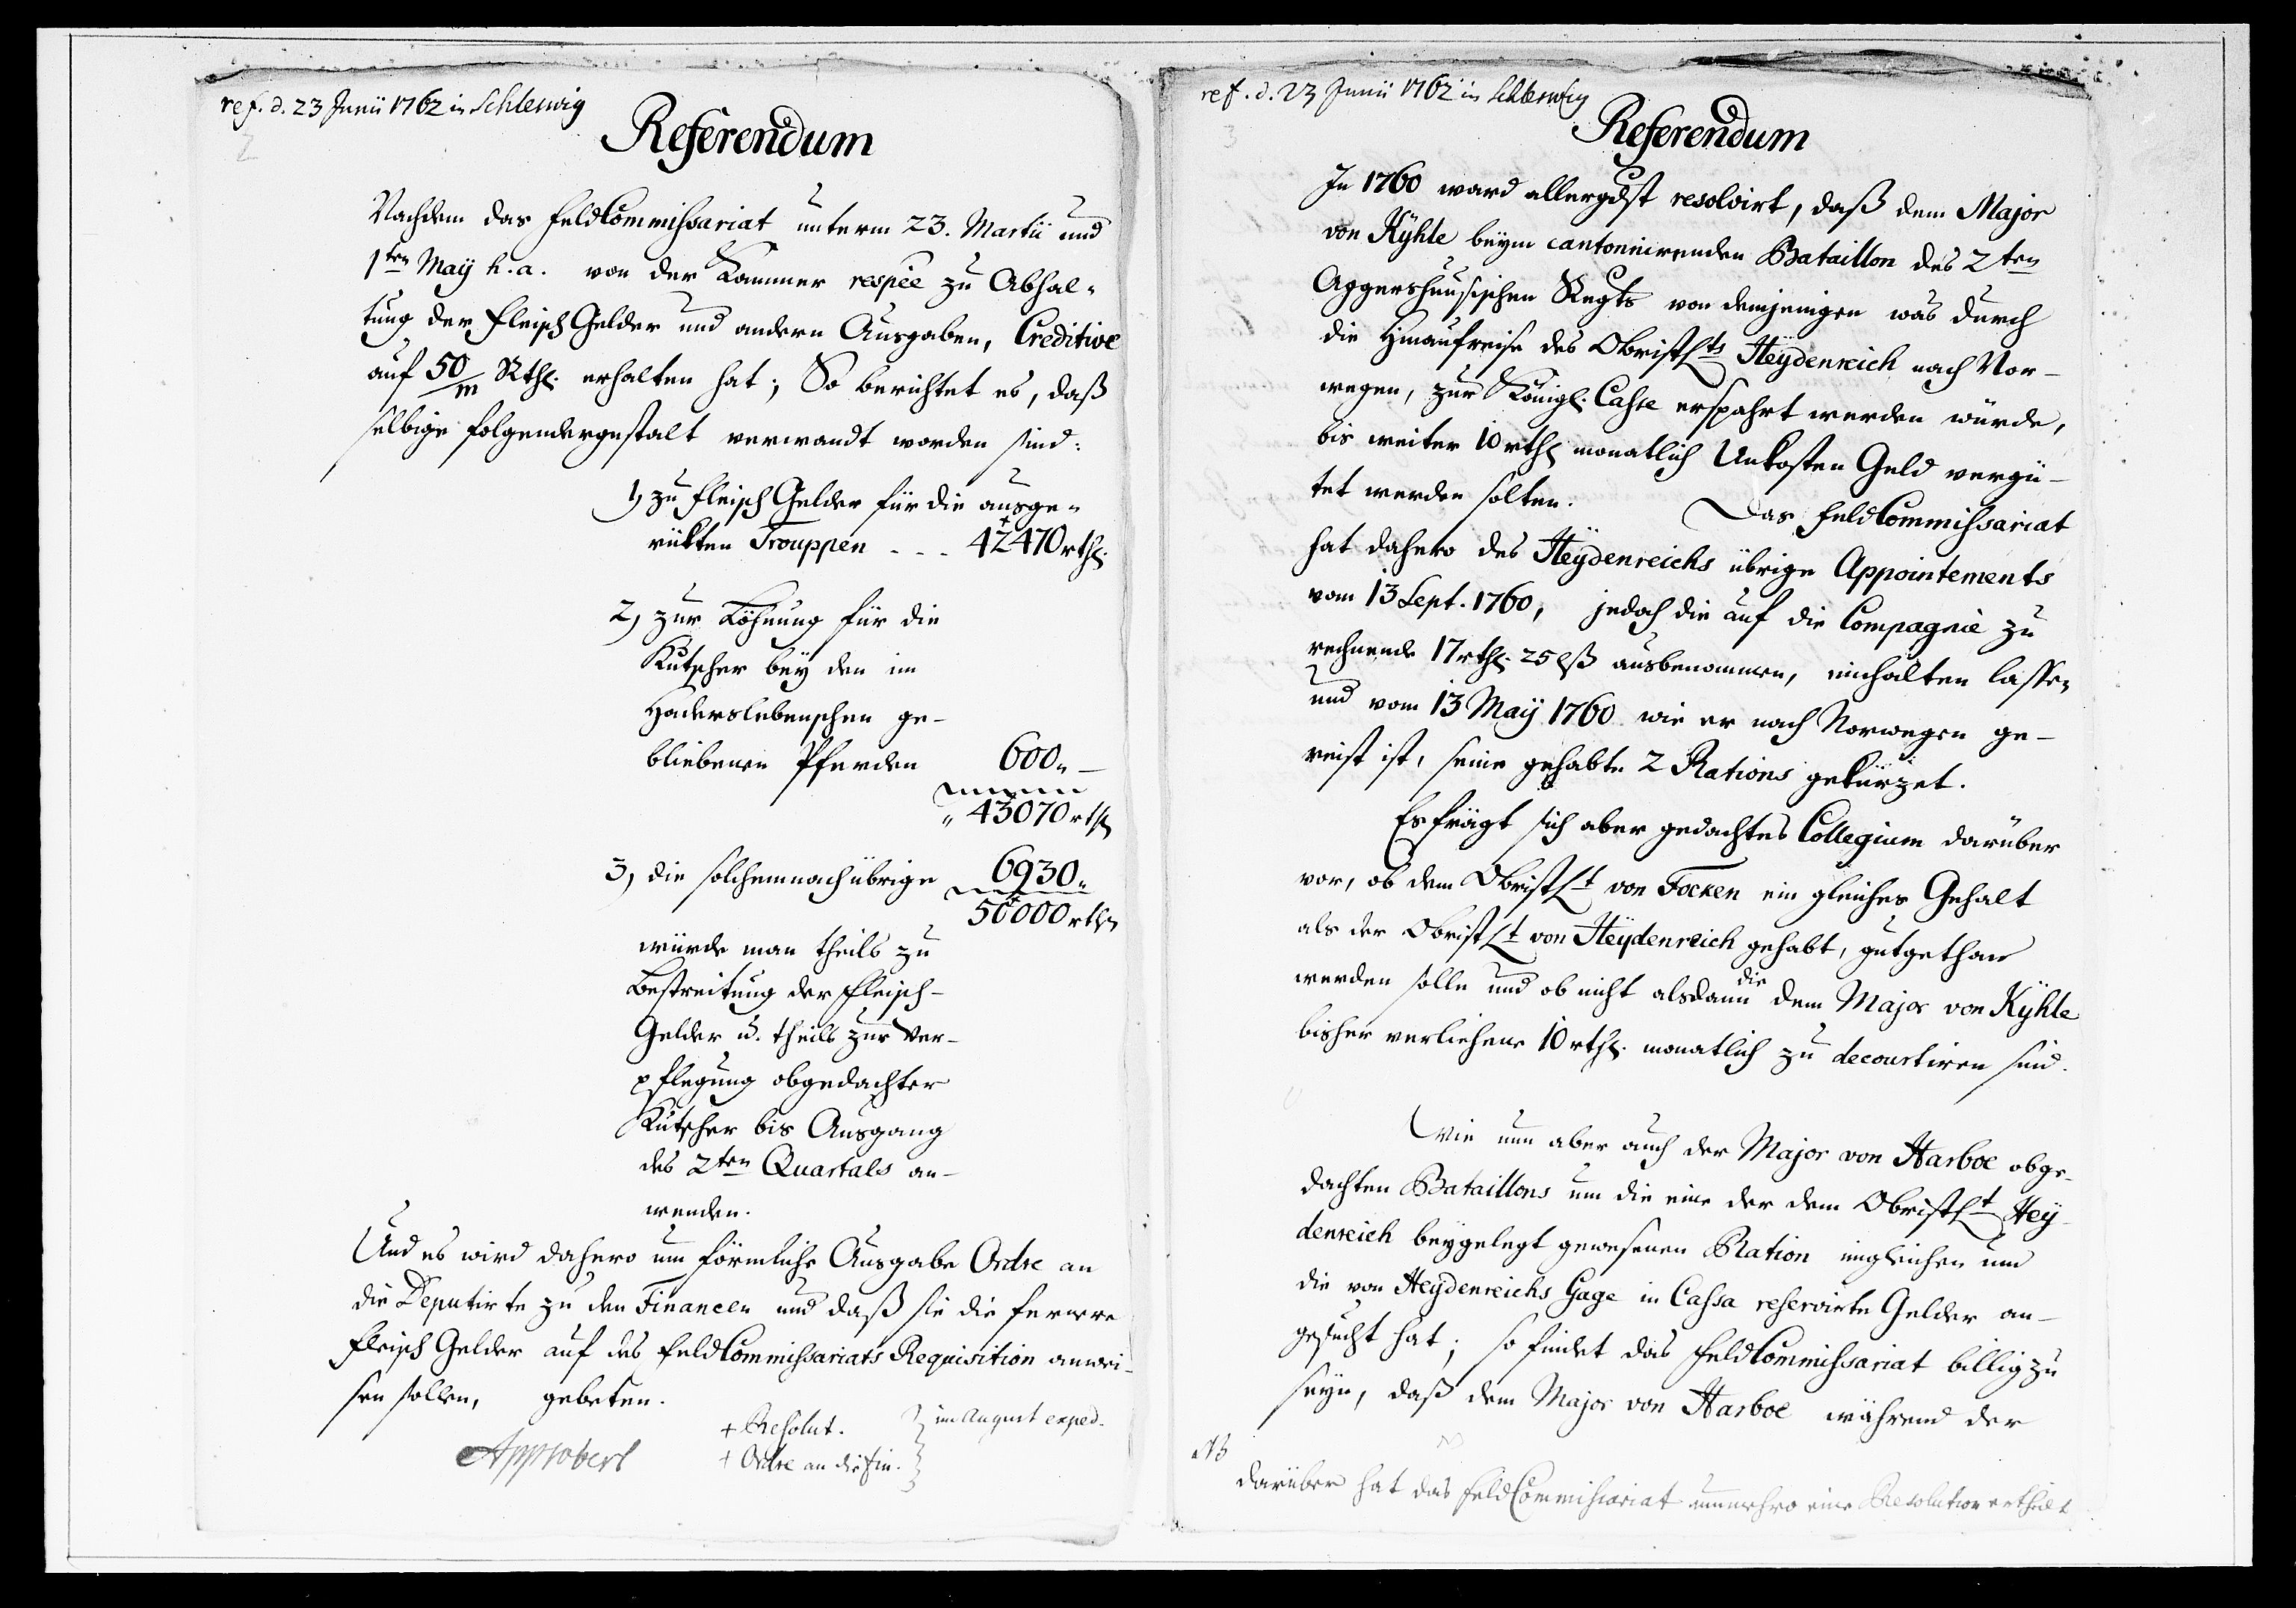 ref. d. 23 Junii 1762 in Schleswig
2
Referendum
Nachdem das FeldCommissariat unterm 23. Martii und
1ten Maÿ h. a. von der Kammer respée zu Abhal-
tung der Fleisch Gelder und andern Ausgaben, Creditive
auf 50/m Rthl. erhalten hat; So berichtet es, daß
selbige folgendergestalt verwandt worden sind:
1, zu Fleisch Gelder für die ausge-
rükten Trouppen - - - 42470 rthl.
2, zur Löhnung für die
Kutscher beÿ den im
Haderslebenschen ge-
bliebenen Pferden 600 „ —
„ 43070 rthl
3, die solchemnach übrige 6930 „
50000 rthl
würde man theils zu
Bestreitung der Fleisch-
Gelder u. theils zur Ver-
pflegung obgedachter
Kutscher bis Ausgang
des 2ten Quartals an-
wenden.
Und es wird dahero um förmliche Ausgabe Ordre an
die Deputirte zu den Financen und daß sie die fernere
Fleisch Gelder auf des FeldCommissariats Requisition anwei-
sen sollen, gebeten.
+ Resolut. } im August exped.
Approbert + Ordre an die Fin. }
ref. d. 23 Junii 1762 in Schleswig
3
Referendum
In 1760 ward allergdst resolvirt, daß dem Major
von Kÿhle beÿm cantonnirenden Bataillon des 2ten
Aggershuusischen Regts von demjenigen was durch
die Hinaufreise des ObristLts Heÿdenreich nach Nor-
wegen, zur Königl. Casse erspahrt werden würde,
bis weiter 10 rthl monatlich Unkosten Geld vergü-
tet werden solten. Das FeldCommissariat
hat dahero des Heÿdenreichs übrige Appointements
vom 13 Sept. 1760, jedoch die auf die Compagnie zu
rechnende 17 rthl. 25 lß ausbenommen, einhalten lassen
und vom 13 Maÿ 1760 wie er nach Norwegen ge-
reist ist, seine gehabte 2 Rations gekürzet.
Es frägt sich aber gedachtes Collegium darüber
vor, ob dem ObristLt von Focken ein gleiches Gehalt
als der ObristLt von Heÿdenreich gehabt, gutgethan
werden solle und ob nicht alsdann die dem Major von Kÿhle
bisher verliehene 10 rthl. monatlich zu decourtiren sind.
Wie nun aber auch der Major von Harboe obge-
dachten Bataillons um die eine der dem ObristLt Heÿ-
denreich beÿgelegt gewesenen Ration imgleichen um
die von Heÿdenreichs Gage in Cassa reservirte Gelder an-
gesucht hat; so findet das FeldCommissariat billig zu
seÿn, daß dem Major von Harboe während der
NB
darüber hat das FeldCommissariat nunmehro eine Resolution ertheilt